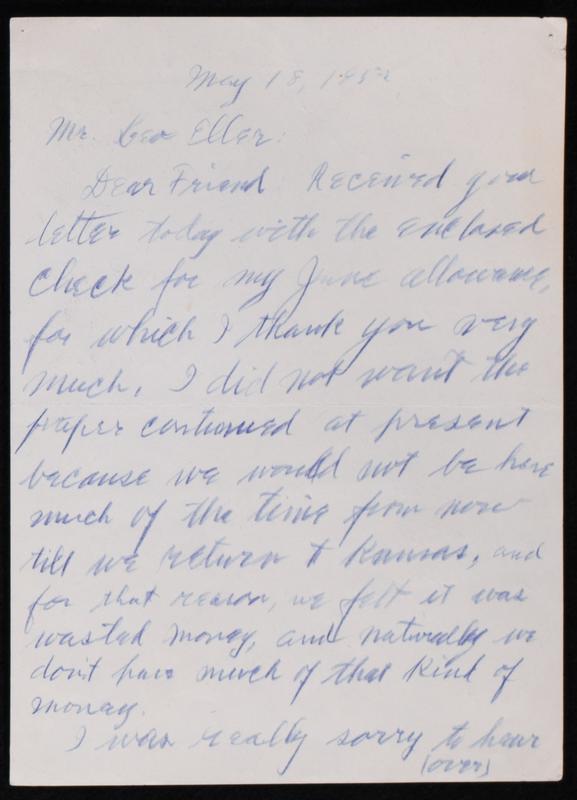 May 18, 1952
Mr. Geo Eller:
Dear Friend Received your
letter today with the enclosed
check for my June allowance,
for which I thank you very
much. I did not want the
paper continued at present
because we would not be here
much of the time from now
till we return to Kansas, and
for that reason, we felt it was
wasted money, and naturally we
don't have much of that kind of
money.
I was really sorry to hear
(over)